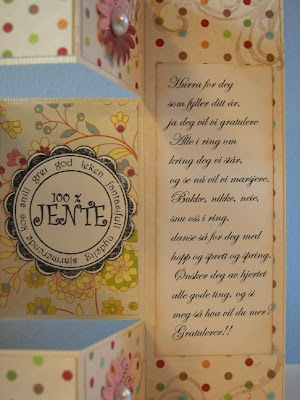 100 %
JENTE
kos snill grei god leken fantasifull nydelig sjarmerende
Hurra for deg
som fyller ditt år,
ja deg vil vi gratulere
Alle i ring om
kring deg vi står,
og se nå vil vi marsjere,
Bukke, nikke, neie,
snu oss i ring,
danse så for deg med
hopp og sprett og spring,
Ønsker deg av hjertet
alle gode ting, og si
meg så hva vil du mer?
Gratulerer!!